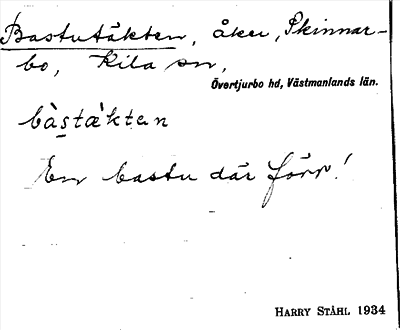 Bastutäkten, åker, Skinnar-
bo, Kila sn,
Övertjurbo hd, Västmanlands län.
bàs̠tæ̀ktan
En bastu där förr!
HARRY STÅHL 1934